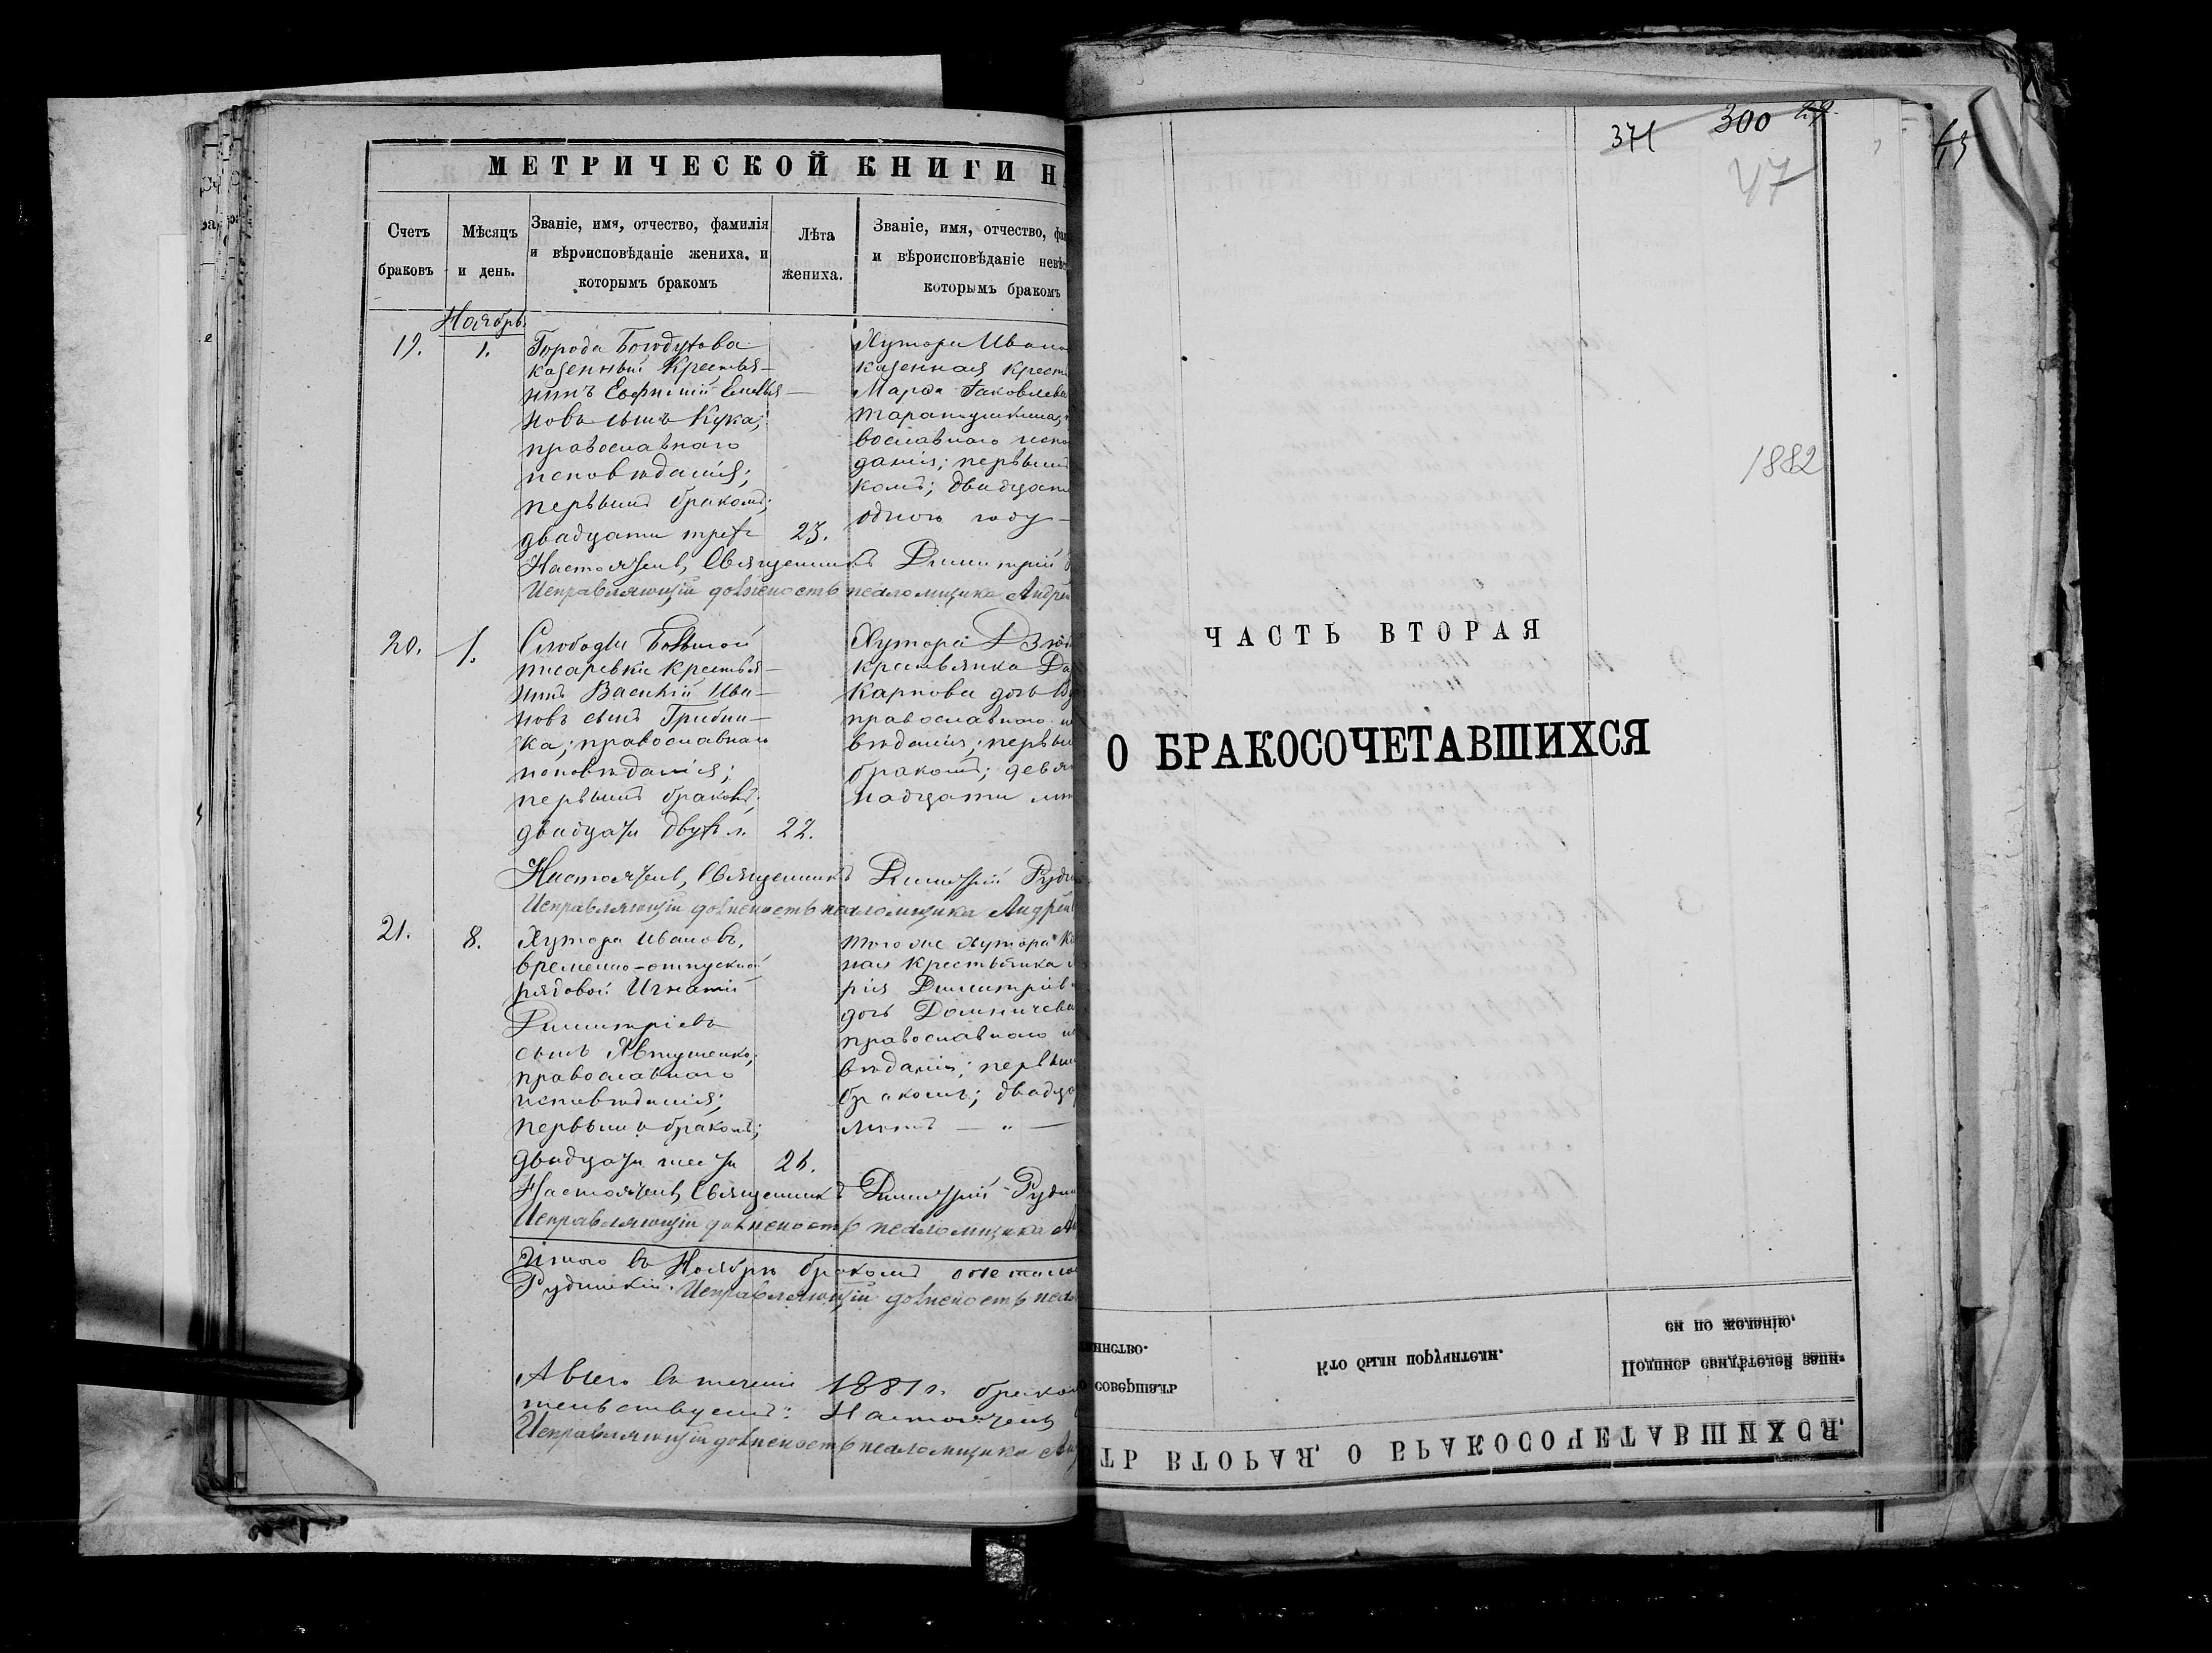 МЕТРИЧЕСКОЙ КНИГИ Н
Счетъ браковъ
Мѣсяцъ и день.
Званіе, имя, отчество, фамилія
и вѣроисповѣданіе жениха, и
которымъ бракомъ
Лѣта жениха.
Званіе, имя, отчество, фам
и вѣроисповѣданіе невѣс
которымъ бракомъ
Ноябрь
19.
1.
Города Богодухова
казенный Крестья-
нинъ Евфимій Емелья-
новъ сынъ Кука;
православнаго
исповѣданія;
первымъ бракомъ;
двадцати трехъ
23.
Хутора Ивано
казенная Крест
Марѳа Іаковлева
вославнаго испо
данія; первымъ
комъ; двадцати
одного году —
Настоятель, Священникъ Димитрій
Исправляющій должность псаломщика Андрей
20.
1.
Слободы Большой
писаревки Крестья-
нинъ Василій Ива-
новъ сынъ Грибни-
ка; православнаго
исповѣданія;
первымъ бракомъ;
двадцати двухъ л.
22.
Хутора
крестьянка Да
Карпова дочь
православнаго и
вѣданія; первы
бракомъ; девят
надцати лѣт
Настоятель, Священникъ Димитрій Рудн
Исправляющій должность псаломщика Андрей
21.
8.
Хутора Ивановъ,
временно-отпускной
рядовой Игнатій
Димитріевъ
сынъ Явтушенко;
православнаго
исповѣданія;
первымъ бракомъ;
двадцати шести
26.
того же хутора Ка
ная крестьянка
рія Димитріев
дочь
православнаго и
вѣданія; первым
бракомъ; двадца
лѣтъ — „ —
Настоятель, Священникъ Димитрій Рудн
Исправляющій должность псаломщика А
Итого въ Ноябрѣ бракомъ сочеталос
Исправляющій должность псал
А всего въ теченіи 1881 г. брако
Настоятель
Исправляющій должность псаломщика Ан
371 300 29.
47
1882
ЧАСТЬ ВТОРАЯ
О БРАКОСОЧЕТАВШИХСЯ
ТЬ ВТОРАЯ, О БРАКОСОЧЕТАВШИХСЯ.
совершалъ
инство.
Кто были поручители.
Подпись свидѣтелей запи-
си по желанію.